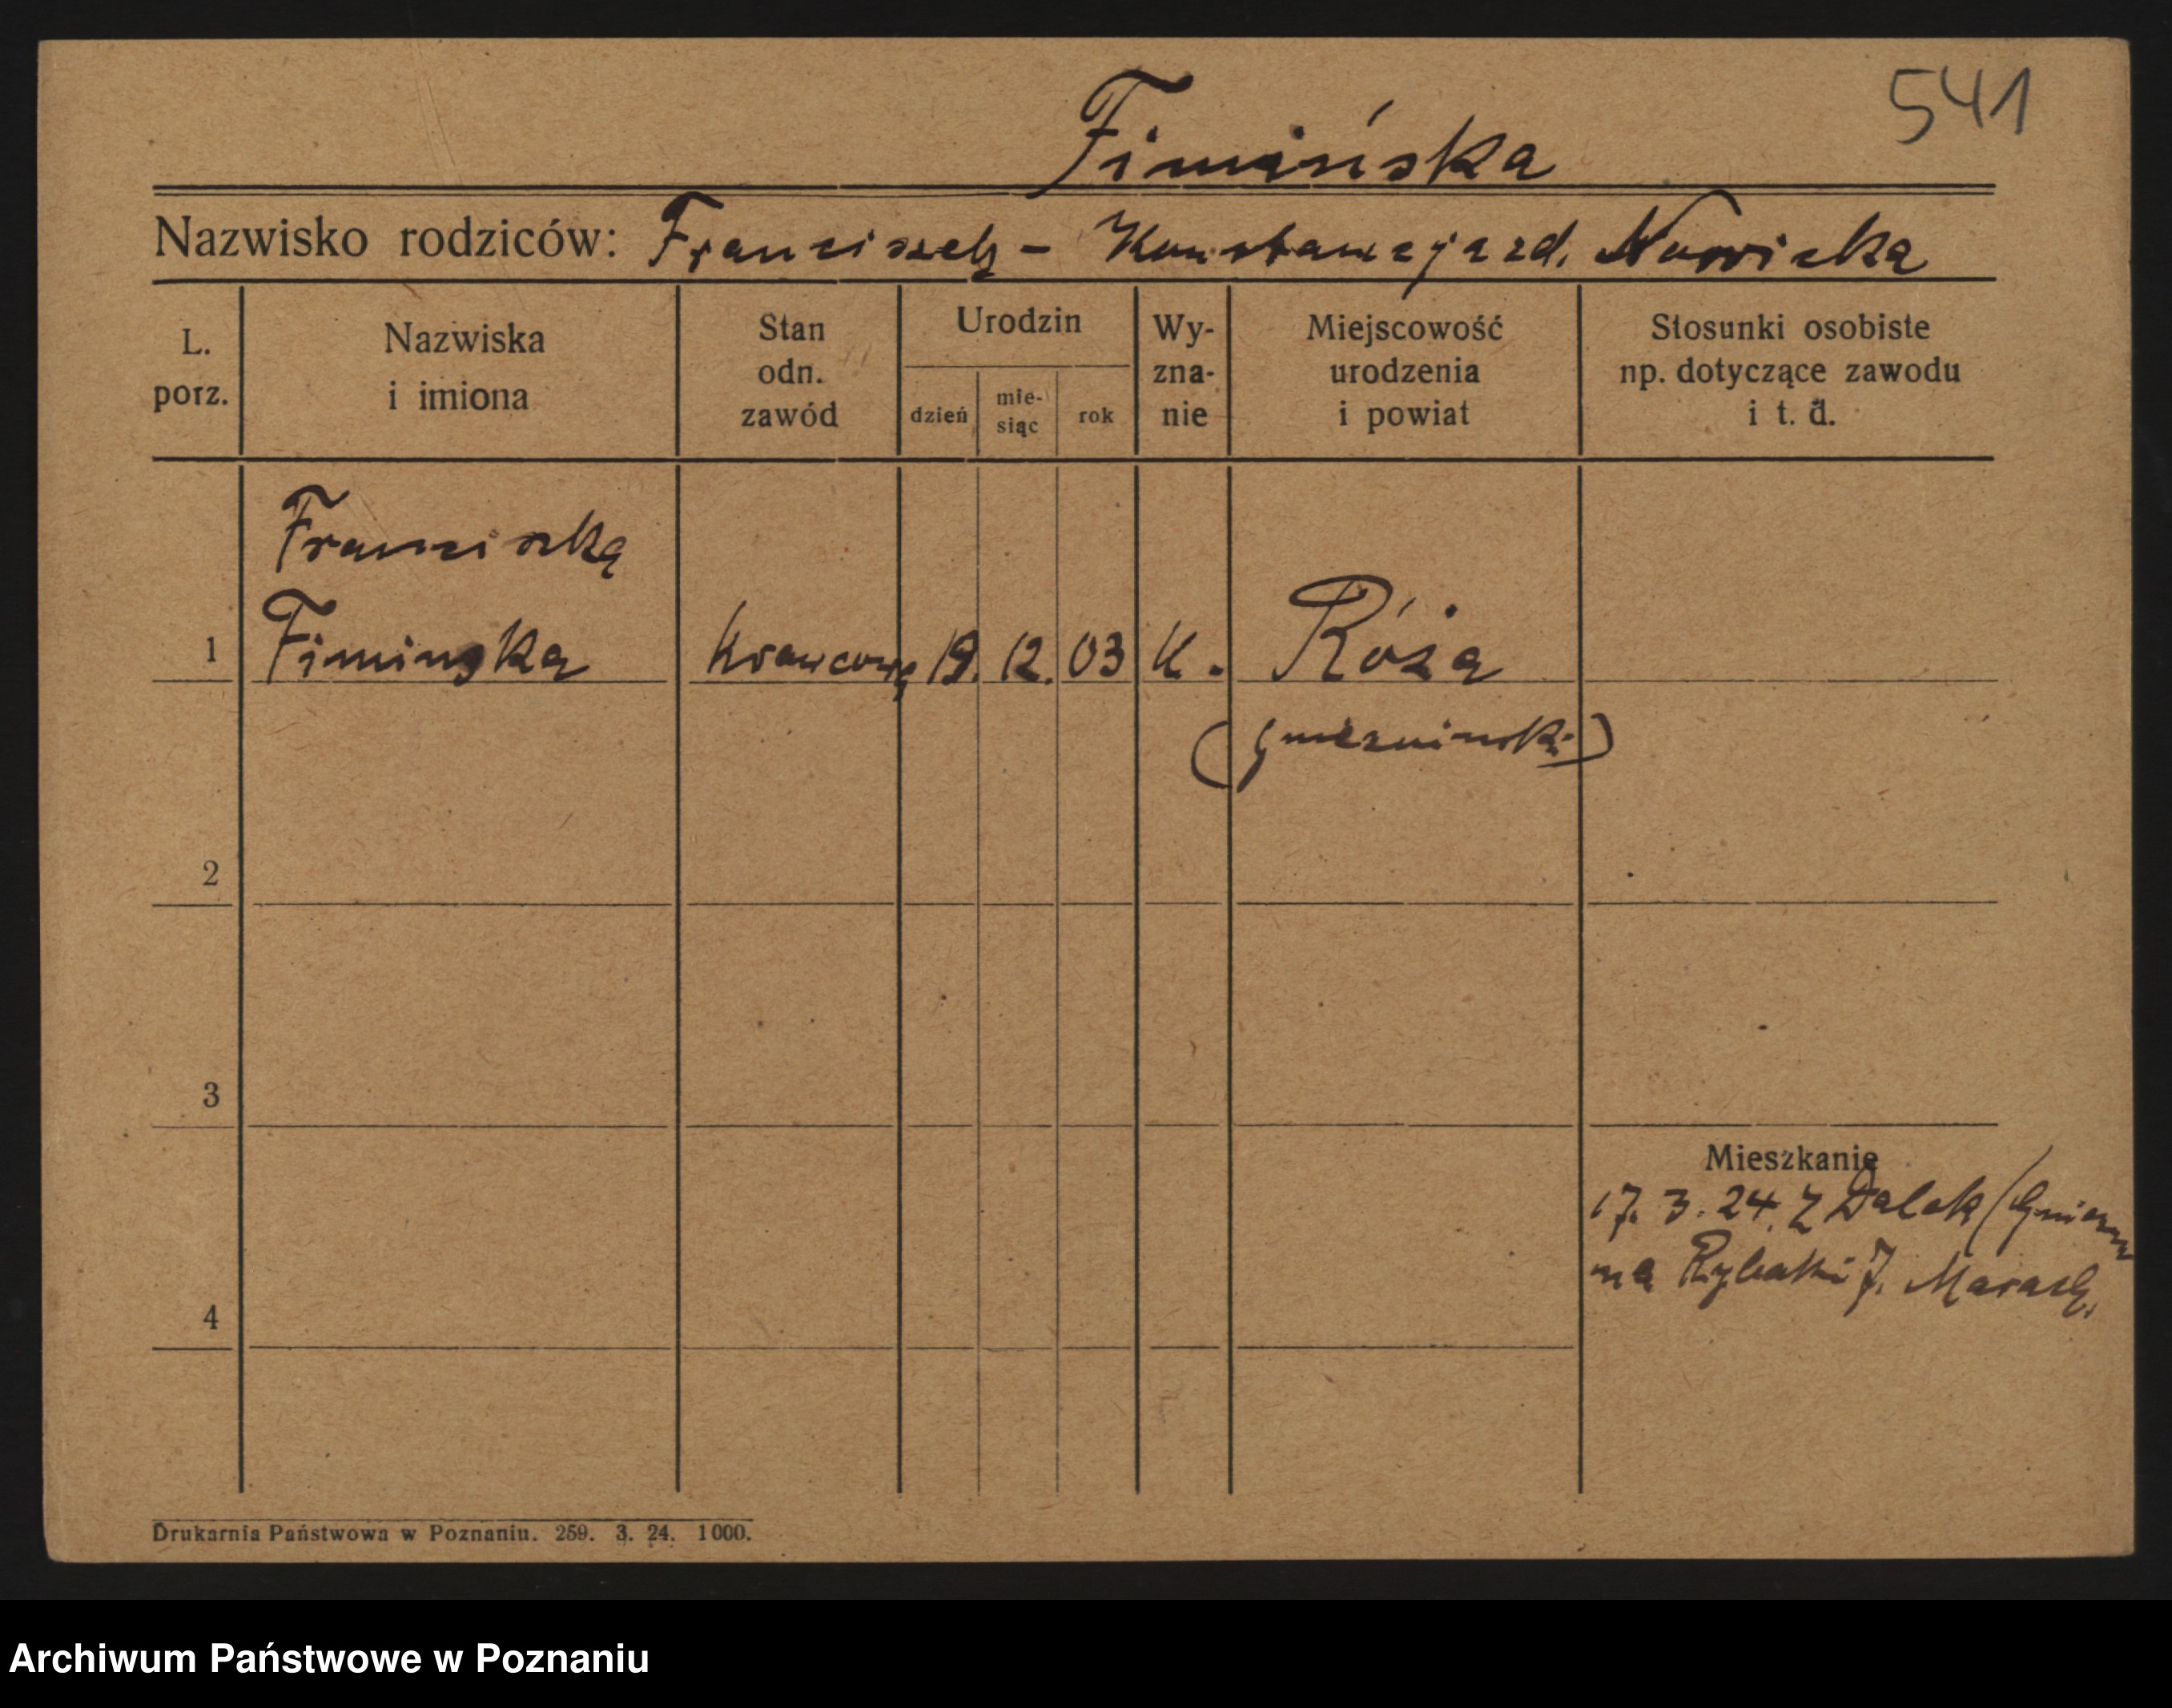 541
Fimińska
Nazwisko rodziców: Franciszek - Konstancja zd. Nowicka
L. porz.
Nazwiska i imiona
Stan odn. zawód
Urodzin
dzień
mie-siąc
rok
Wy-zna-nie
Miejscowość urodzenia i powiat
Stosunki osobiste np. dotyczące zawodu i t. d.
Franciszka
1 Fiminska Krawcowa 19. 12. 03 K. Róża
(gniezninski)
2
3
Mieszkanie
17. 3. 24. Z Dalek (Gniezn
na Rybaki 7.
4
Drukarnia Państwowa w Poznaniu. 259. 3. 24. 1000.
Archiwum Państwowe w Poznaniu